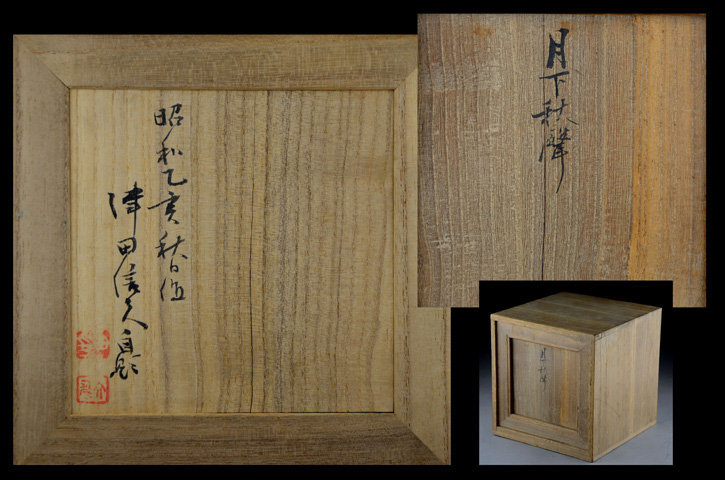 昭和乙亥秋日作
津田信夫自題
月下秋聲
月下秋聲